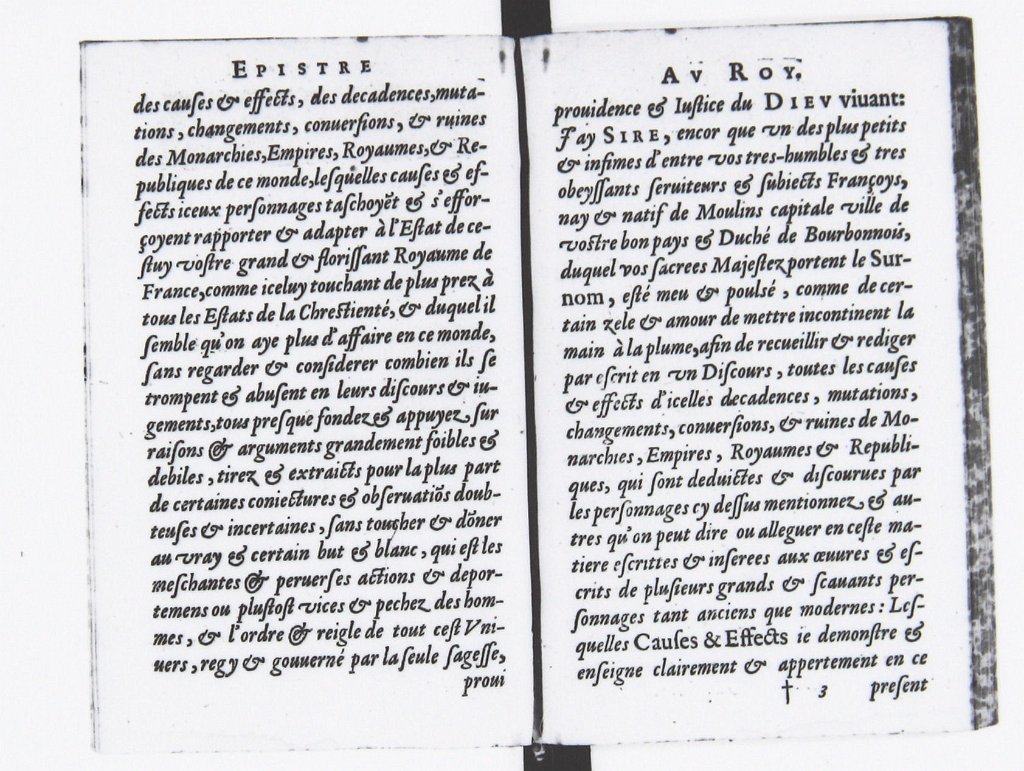 EPISTRE
des cauſes & effects, des decadences, muta-
tions, changements, conuerſions, & ruines
des Monarchies, Empires, Royaumes, & Re-
publiques de ce monde, leſquelles cauſes & ef-
fects iceux perſonnages taſchoyẽt & s'effor-
çoyent rapporter & adapter à l'Eſtat de ce-
ſtuy voſtre grand & floriſſant Royaume de
France, comme iceluy touchant de plus prez à
tous les Eſtats de la Chreſtienté, & duquel il
ſemble qu'on aye plus d'affaire en ce monde,
ſans regarder & conſiderer combien ils ſe
trompent & abusent en leurs diſcours & iu-
gements, tous preſque fondez & appuyez ſur
raiſons & arguments grandement foibles &
debiles, tirez & extraicts pour la plus part
de certaines coniectures & obſeruatiõs doub-
teuſes & incertaines, ſans toucher & dõner
au vray & certain but & blanc, qui eſt les
meſchantes & peruerſes actions & depor-
temens ou pluſtoſt vices & pechez des hom-
mes, & l'ordre & reigle de tout ceſt Vni-
uers, regy & gouuerné par la ſeule ſageſſe,
proui
AV ROY.
prouidence & Iuſtice du DIEV viuant:
J'ay SIRE, encor que vn des plus petits
& infimes d'entre vos tres-humbles & tres
obeyſſants ſeruiteurs & ſubiects Françoys,
nay & natif de Moulins capitale ville de
voſtre bon pays & Duché de Bourbonnois,
duquel vos ſacrees Majeſtez portent le Sur-
nom, eſté meu & poulsé, comme de cer-
tain zele & amour de mettre incontinent la
main à la plume, afin de recueillir & rediger
par eſcrit en vn Diſcours, toutes les cauſes
& effects d'icelles decadences, mutations,
changements, conuerſions, & ruines de Mo-
narchies, Empires, Royaumes & Republi-
ques, qui ſont deduictes & diſcourues par
les perſonnages cy deſſus mentionnez & au-
tres qu'on peut dire ou alleguer en ceſte ma-
tiere eſcrittes & inſerees aux œuures & eſ-
crits de pluſieurs grands & ſcauants per-
ſonnages tant anciens que modernes: Leſ-
quelles Cauſes & Effects ie demonſtre &
enſeigne clairement & appertement en ce
† 3 preſent